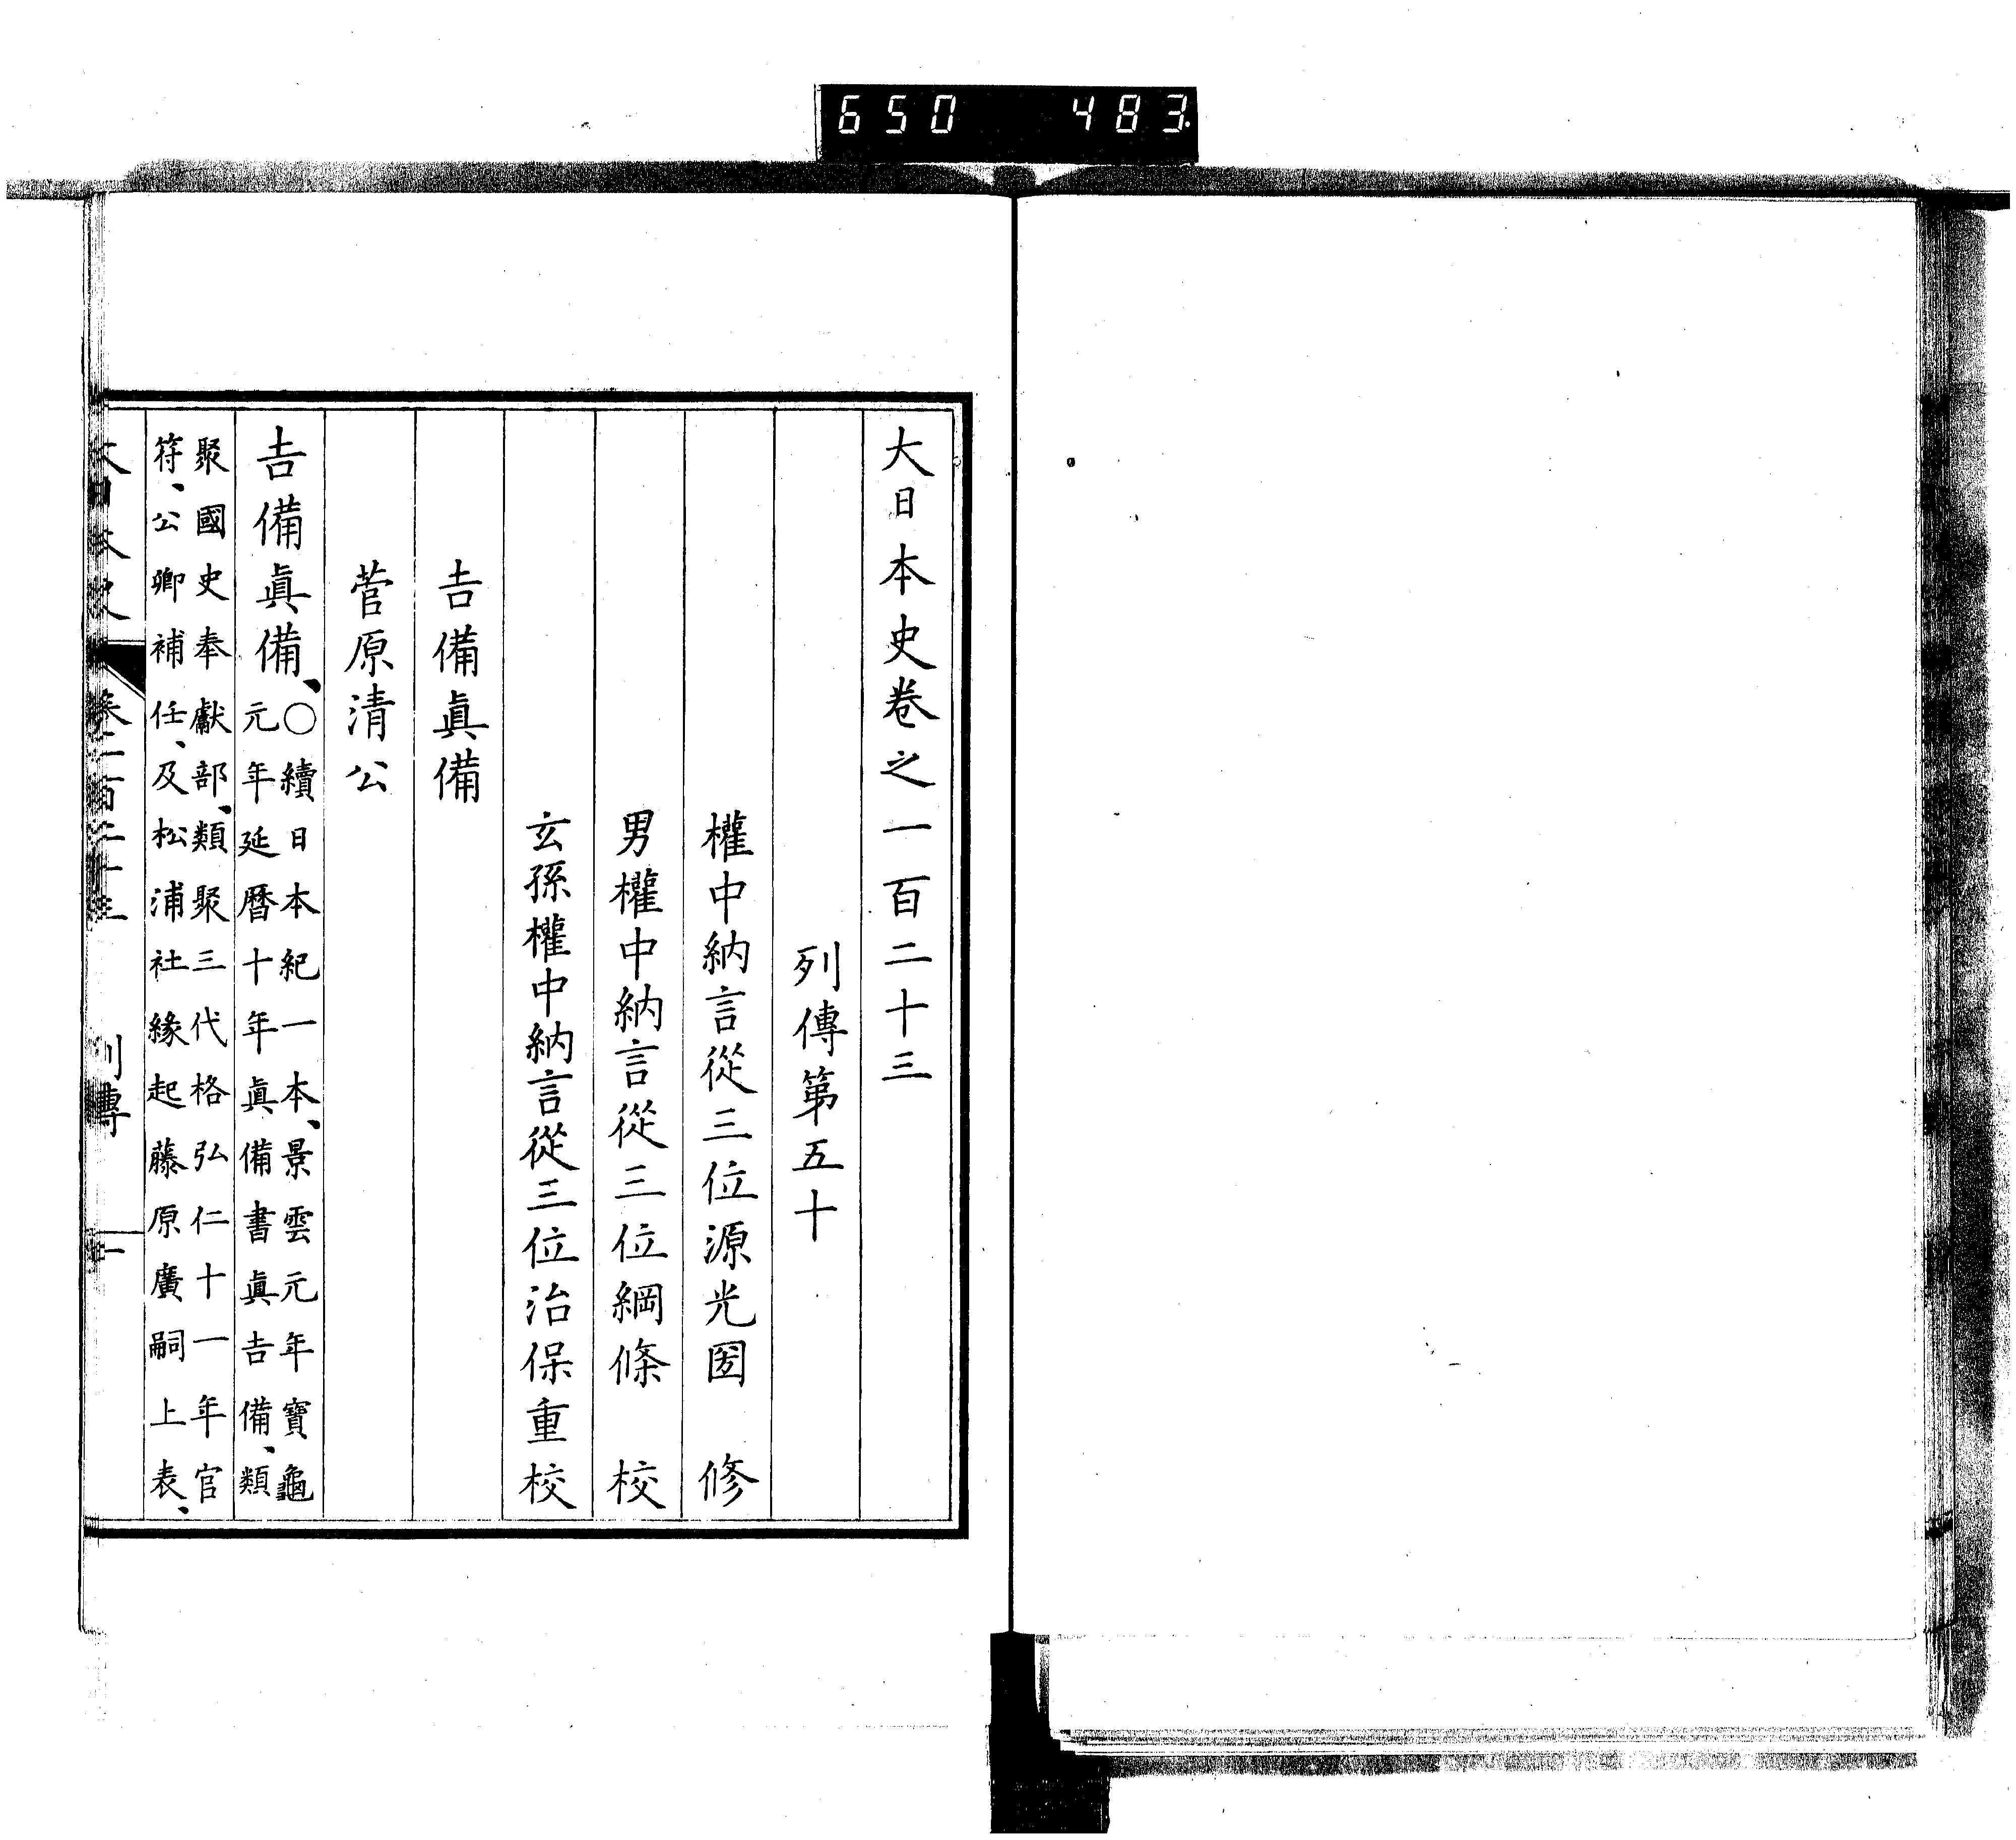 650 483
大日本史卷之一百二十三
列傳第五十
權中納言從三位源光圀 修
男權中納言從三位綱條 校
玄孫權中納言從三位治保重校
吉備眞備
菅原清公
吉備眞備、
〇續日本紀一本、景雲元年寶龜
元年延曆十年眞備書眞吉備、類
聚國史奉獻部、類聚三代格弘仁十一年官
符、公卿補任、及松浦社緣起藤原廣嗣上表、
列傳